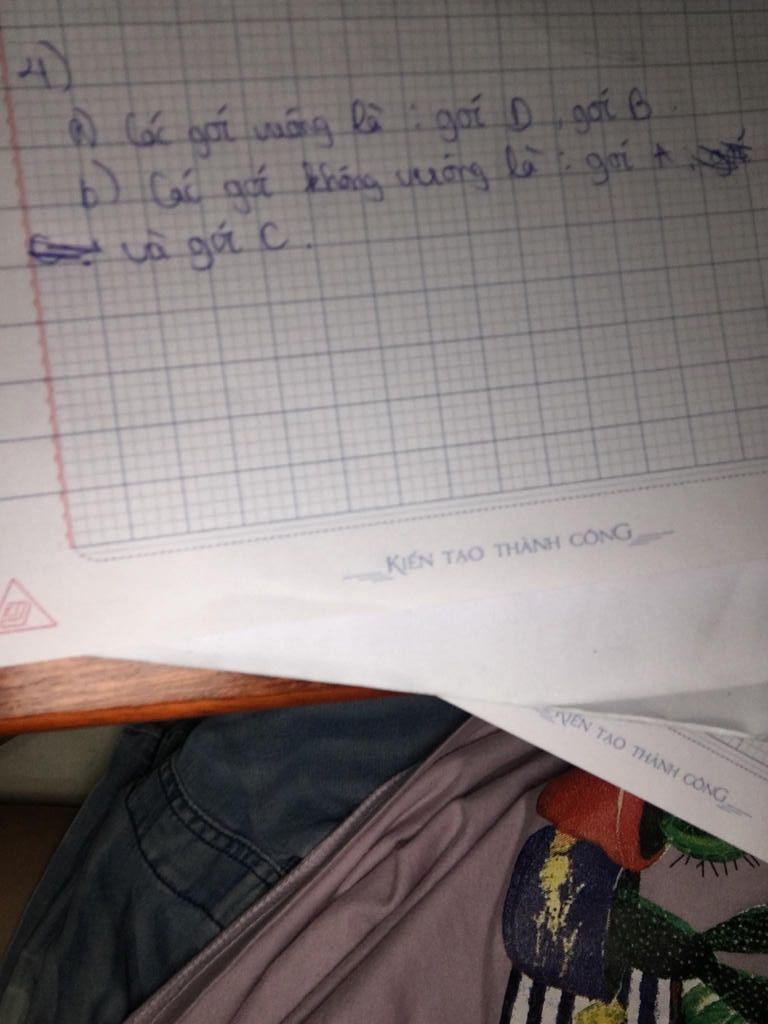 4)
a) Các gói vuông là : gói D , gói B .
b) Các gói không vuông là : gói A ,
và gói C .
KIẾN TẠO THÀNH CÔNG
KIẾN TẠO THÀNH CÔNG